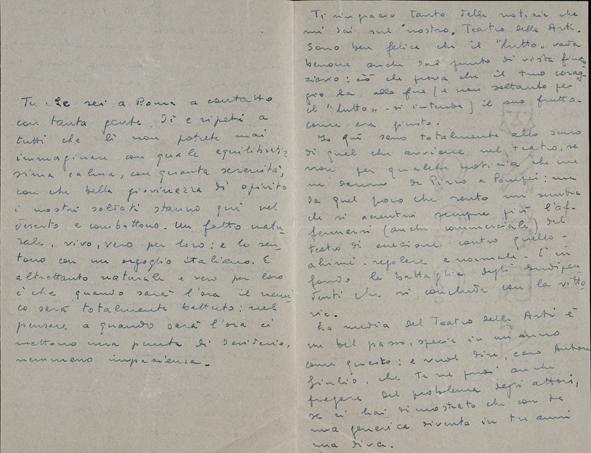 Tu che sei a Roma a contatto
con tanta gente, di e ripeti a
tutti che lì non potete mai
immaginare con quale equilibratis-
sima calma, con quanta serenità,
con che bella giovinezza di spirito
i nostri soldati stanno qui nel
deserto e combattono. Un fatto natu-
rale, vivo, vero per loro: e lo sen-
tono con un orgoglio italiano. E
altrettanto naturale e vero per loro
è che quando sarà l'ora il nemi-
co sarà totalmente battuto; nel
pensare a quando sarà l'ora ci
mettono una punta di desiderio,
nemmeno impazienza.
Ti ringrazio tanto delle notizie che
mi dai sul "nostro" Teatro delle Arti.
Sono ben felice che il "tutto" vada
benone anche dal punto di vista finan-
ziario: ciò che prova che il tuo corag-
gio ha, alla fine (e non soltanto per
il "tutto" - si intende) il suo frutto -
come era giusto.
Io qui sono totalmente allo scuro
di quel che avviene nel teatro, se
non per qualche notizia che me
ne danno da
da quel poco che sento mi sembra
che si accentui sempre più l'af-
fermarsi (anche commerciale) del
teatro di eccezione contro quello -
ahimè - regolare e normale. È in
fondo la battaglia degli indipen-
denti che si conclude con la vitto-
ria.
La media del Teatro delle Arti è
un bel passo, specie in un anno
come questo: e vuol dire, caro Anton
Giulio, che te ne puoi anche
fregare del problema degli attori,
se ci hai dimostrato che con te
una generica diventa in tre anni
una diva.